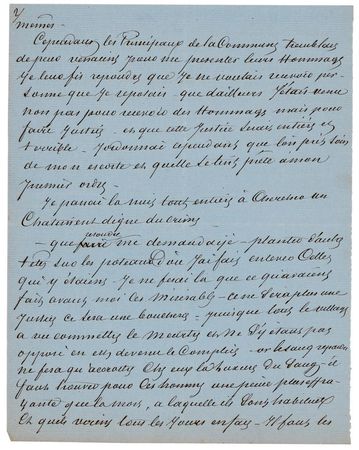 mêmes -
Cependant les Principaux de la Commune tremblants
de peur venaient pour me presenter leurs Hommages
Je leur fis repondre que Je ne voulais recevoir per-
sonne que Je reposais - que d'ailleurs J'étais venu
non pas pour recevoir des Hommages mais pour
faire Justice - et que cette Justice serait entière et
terrible - J'ordonnai cependant que l'on prit soin
de mon escorte et qu'elle se tint prête à mon
premier ordre -
Je passai la nuit tout entière à chercher un
Chatiment digne du crime
- que resoudre me demandai je - planter d'autres
têtes sur les poteaux d'où J'ai fait enlever Celles
qui y étaient - Je ne ferai là que ce qu'avaient
fait avant moi ces Miserables - ce ne sera plus une
Justice ce sera une boucherie - puisque tout le village
a vu commettre le Meurtre et ne s'y étant pas
opposé en est devenu le Complice - or le sang repandu
ne fera qu'accroitre Chez eux la Luxure du Sang - il
faut trouver pour ces hommes une peine plus effra-
yante que la mort, à laquelle ils sont habitués
et qu'ils voient tous les Jours en face - Il faut les